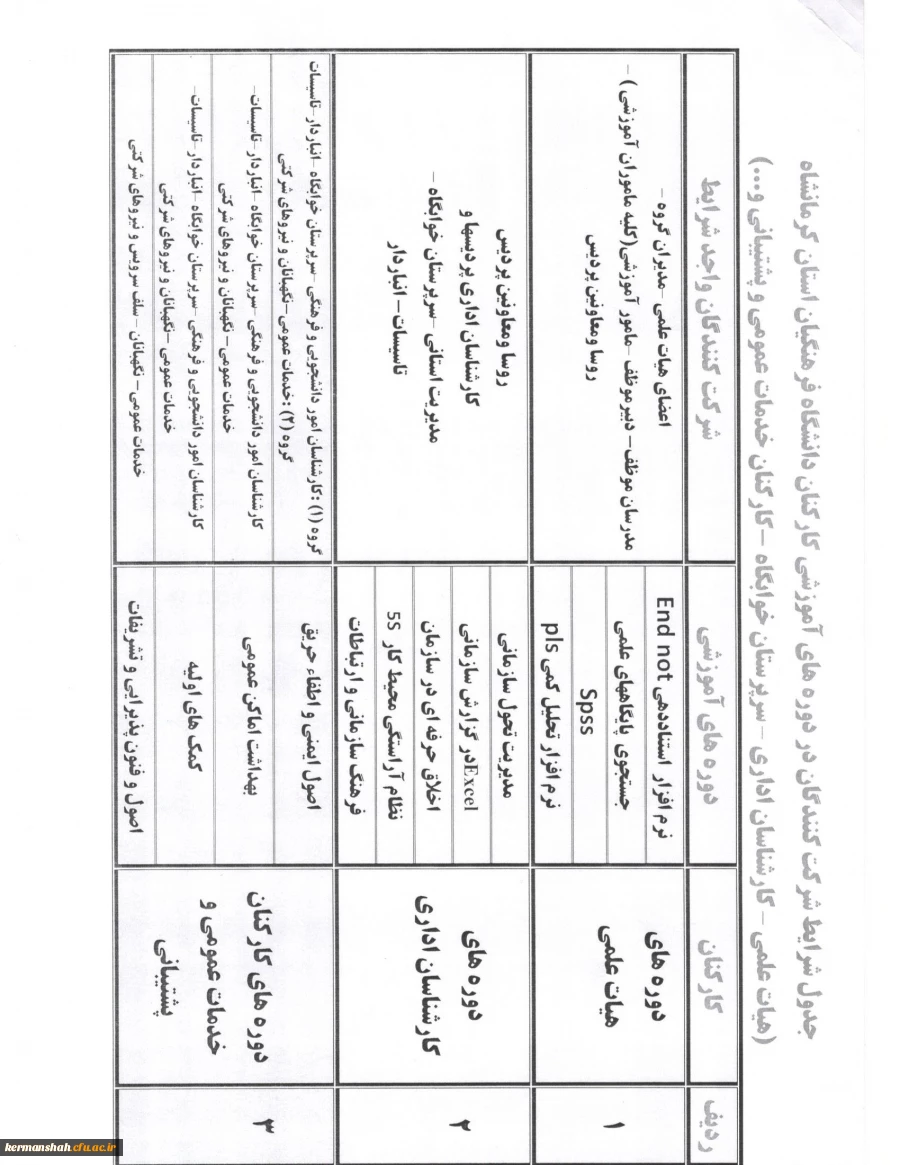 جدول شرایط شرکت کنندگان در دوره های آموزشی کارکنان دانشگاه فرهنگیان استان کرمانشاه
(هیات علمی – کارشناسان اداری – سرپرستان خوابگاه – کارکنان خدمات عمومی و پشتیبانی و...)
ردیف
کارکنان
دوره های آموزشی
شرکت کنندگان واجد شرایط
۱
دوره های
هیات علمی
نرم افزار استناددهی End not
جستجوی پایگاههای علمی
Spss
نرم افزار تحلیل کمی pls
اعضای هیات علمی –مدیران گروه –
مدرسان موظف– دبیرموظف –مامور آموزشی(کلیه ماموران آموزشی) –
روسا ومعاونین پردیس
۲
دوره های
کارشناسان اداری
مدیریت تحول سازمانی
Excelدر گزارش سازمانی
اخلاق حرفه ای در سازمان
نظام آراستگی محیط کار 5S
فرهنگ سازمانی و ارتباطات
روسا ومعاونین پردیس
کارشناسان اداری پردیسها و
مدیریت استانی –سرپرستان خوابگاه –
تاسیسات– انباردار
۳
دوره های کارکنان
خدمات عمومی و
پشتیبانی
اصول ایمنی و اطفاء حریق
بهداشت اماکن عمومی
کمک های اولیه
اصول و فنون پذیرایی و تشریفات
گروه (۱) :کارشناسان امور دانشجویی و فرهنگی –سرپرستان خوابگاه –انباردار–تاسیسات
گروه (۲) :خدمات عمومی–نگهبانان و نیروهای شرکتی
کارشناسان امور دانشجویی و فرهنگی –سرپرستان خوابگاه –انباردار–تاسیسات–
خدمات عمومی– نگهبانان و نیروهای شرکتی
کارشناسان امور دانشجویی و فرهنگی –سرپرستان خوابگاه –انباردار–تاسیسات–
خدمات عمومی –نگهبانان و نیروهای شرکتی
خدمات عمومی– نگهبانان – سلف سرویس و نیروهای شرکتی
kermanshah.cfu.ac.ir